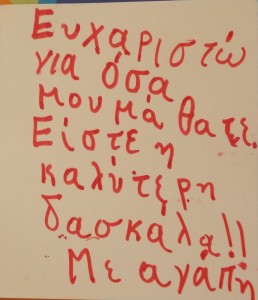 Ευχαριστώ
για όσα
μου μάθατε.
Είστε η
καλύτερη
δασκάλα!!
Με αγάπη